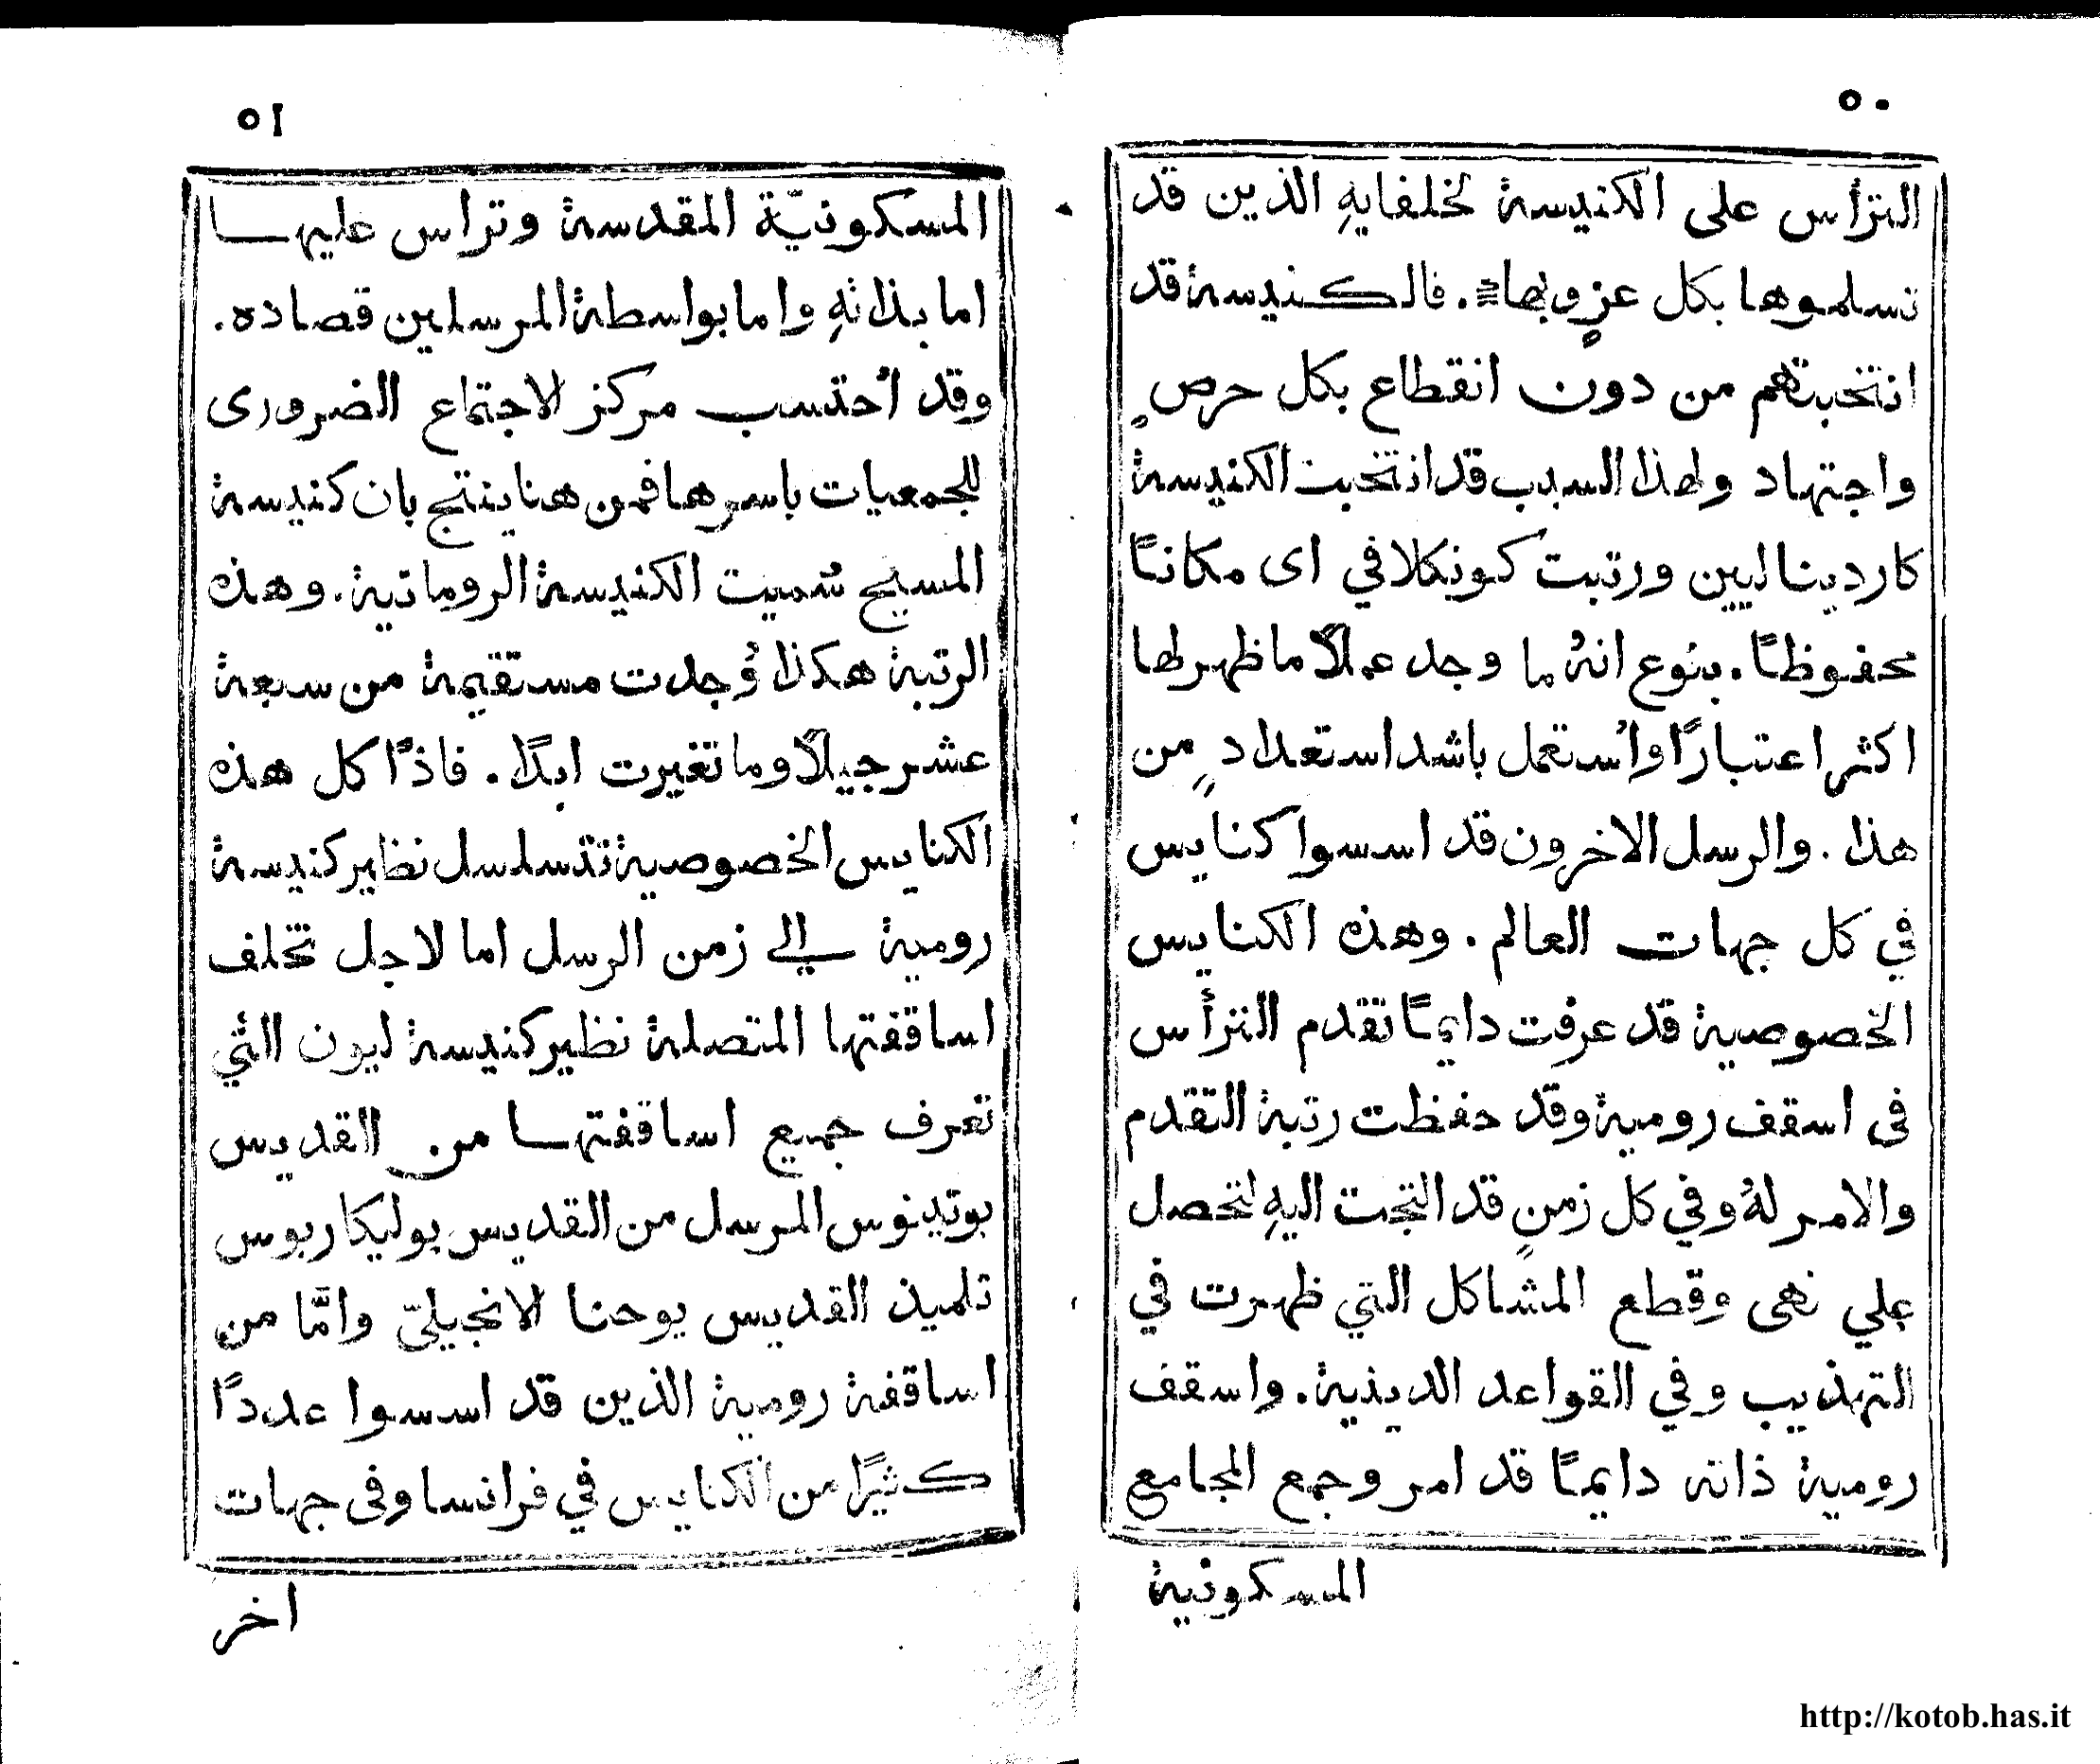 ٥٠
الترأس على الكنيسة لخلفايهِ الذين قد
تسلموها بكل عزٍ وبهاءٍ. فالكنيسة قد
انتخبتهم من دون انقطاع بكل حرصٍ
واجتهاد ولهذا السبب قد انتخبت الكنيسة
كارديناليين ورتبت كونكلا في اى مكانًا
محفوظًا. بنوع انهُ ما وجد عملًا ما ظهر لها
اكثر اعتبارًا واُستعمل باشد استعدادٍ من
هذا. والرسل الاخرون قد اسسوا كنايس
في كل جهات العالم. وهذه الكنايس
الخصوصية قد عرفت دايمًا تقدم الترأس
فى اسقف رومية وقد حفظت رتبة التقدم
والامر لهُ وفي كل زمنٍ قد التجت اليهِ لتحصل
علي نهى وقطع المشاكل التي ظهرت في
التهذيب وفي القواعد الدينية. واسقف
رومية ذاته دايمًا قد امر وجمع المجامع
المسكونية
٥١
المسكونيّة المقدسة وتراس عليها
اما بذاتهِ واما بواسطة المرسلين قصاده.
وقد اُحتسب مركز الاجتماع الضرورى
للجمعيات باسرها فمن هنا ينتج بان كنيسة
المسيح سُميت الكنيسة الرومانية. وهذه
الرتبة هكذا وُجدت مستقيمة من سبعة
عشر جيلًا وما تغيرت ابدًا. فاذًا كل هذه
الكنايس الخصوصية تتسلسل نظير كنيسة
رومية الي زمن الرسل اما لاجل تخلف
اساقفتها المتصلة نظير كنيسة ليون التي
تعرف جميع اساقفتها من القديس
بوتينوس المرسل من القديس بوليكاربوس
تلميذ القديس يوحنا الانجيليّ وامّا من
اساقفة رومية الذين قد اسسوا عددًا
كثيرًا من الكنايس في فرانسا وفى جهات
اخر
http://kotob.has.it